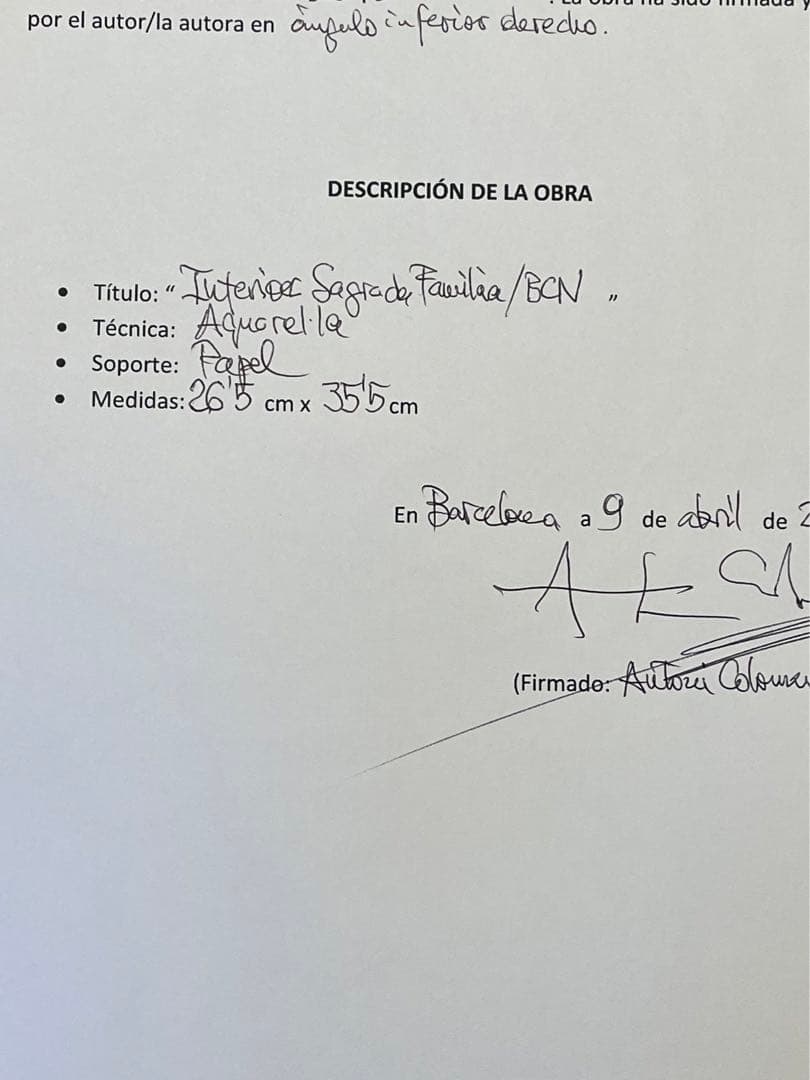 La obra ha sido firmada y
por el autor/la autora en ángulo inferior derecho.
DESCRIPCIÓN DE LA OBRA
• Título: “ Interior Sagrada Família/BCN ”
• Técnica: Aquarel·la
• Soporte: Papel
• Medidas: 26'5 cm x 35'5 cm
En Barcelona a 9 de abril de 2
(Firmado: Antoni